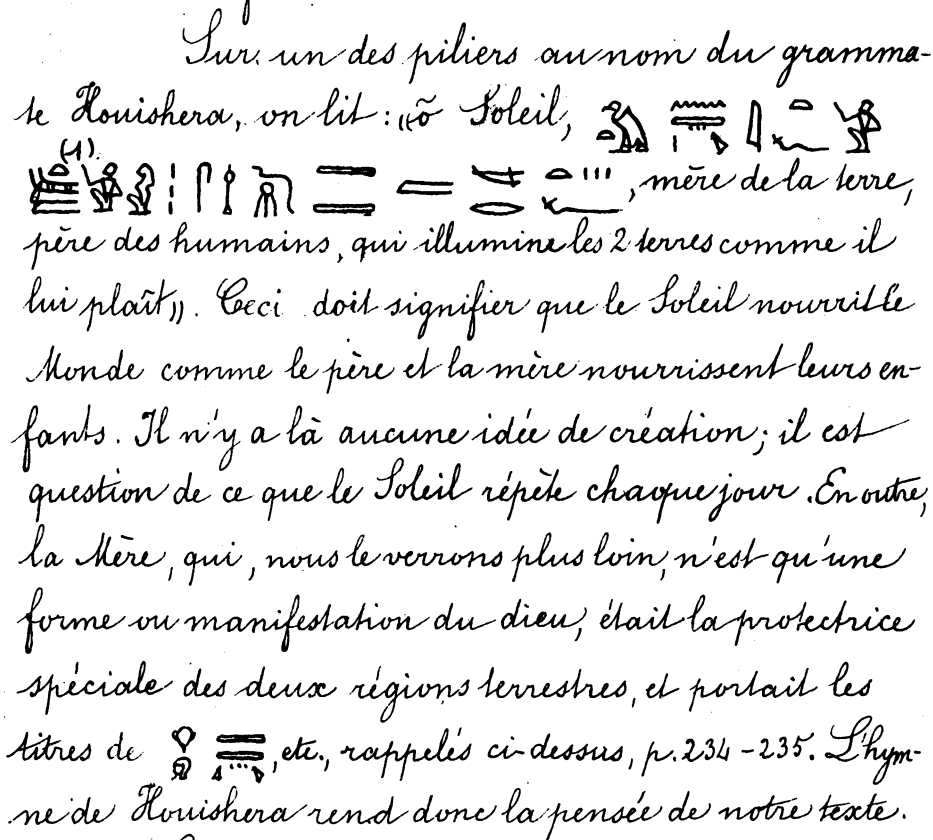 Sur un des piliers au nom du gramma-
te Houishera, on lit : «ô Soleil,
(1) , mère de la terre,
père des humains, qui illumine les 2 terres comme il
lui plaît». Ceci doit signifier que le Soleil nourrit le
Monde comme le père et la mère nourrissent leurs en-
fants. Il n'y a là aucune idée de création; il est
question de ce que le Soleil répète chaque jour. En outre,
la Mère, qui, nous le verrons plus loin, n'est qu'une
forme ou manifestation du dieu, était la protectrice
spéciale des deux régions terrestres, et portait les
titres de , etc., rappelés ci-dessus, p. 234-235. L'hym-
ne de Houishera rend donc la pensée de notre texte.